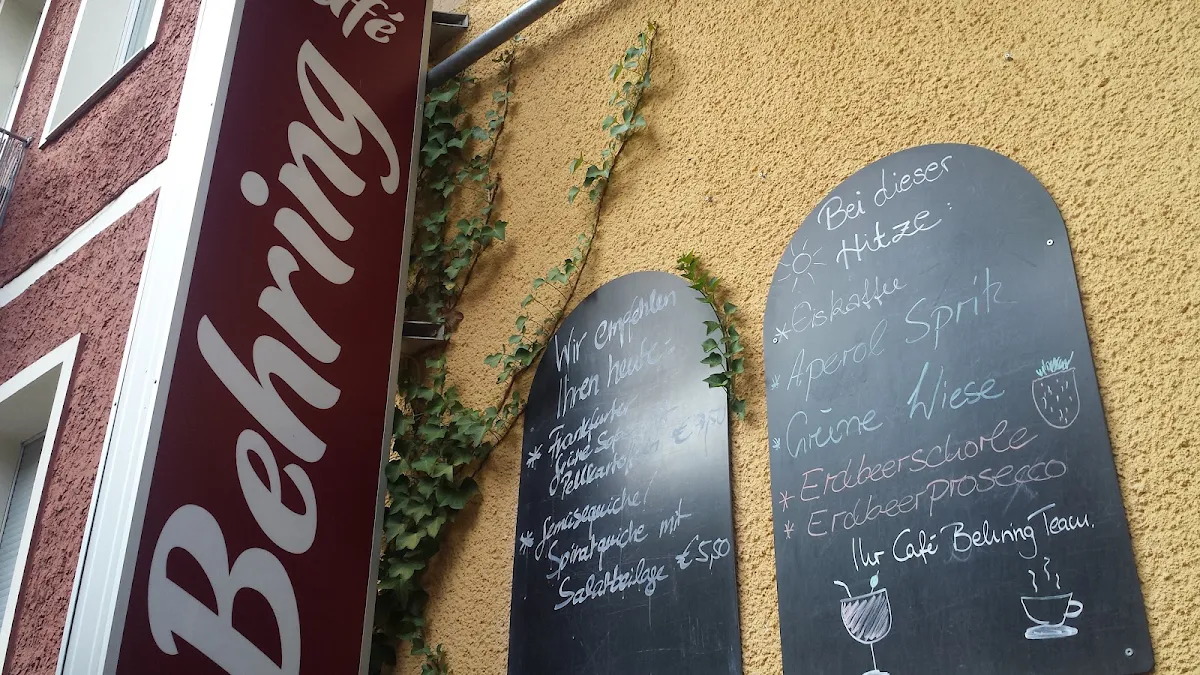 Café
Behring
Wir empfehlen
Ihnen heute:
* Frankfurter
Grüne Soße
Pellkartoffeln €
* Gemüsequiche/
Spinatquiche mit
Salatbeilage €5,50
Bei dieser
Hitze:
* Eiskaffee
* Aperol Spritz
* Grüne Wiese
* Erdbeerschorle
* Erdbeerprosecco
Ihr Café Behring Team.